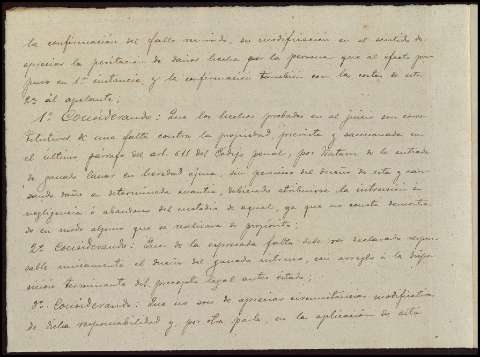 la confirmación del fallo recurrido, su modificación en el sentido de
apreciar la peritación de daños hecha por la persona que al efecto pro-
puso en 1ª instancia y la confirmación también con las costas de esta
2ª al apelante;
1º Considerando: Que los hechos probados en el juicio son cons-
titutivos de una falta contra la propiedad, prevista y sancionada en
el último párrafo del art. 611 del Código penal, por tratarse de la entrada
de ganado lanar en heredad ajena, sin permiso del dueño de esta y cau-
sando daño en determinada cuantía, debiendo atribuirse la intrusión a
negligencia ó abandono del custodio de aquel, ya que no consta demostra-
do en modo alguno que se realizara de propósito;
2º Considerando: Que de la expresada falta debe ser declarado respon-
sable unicamente el dueño del ganado intruso, con arreglo á la dispo-
sición terminante del precepto legal antes citado;
3º Considerando: Que no son de apreciar circunstancias modificativas
de dicha responsabilidad y, por otra parte, en la aplicación de esta